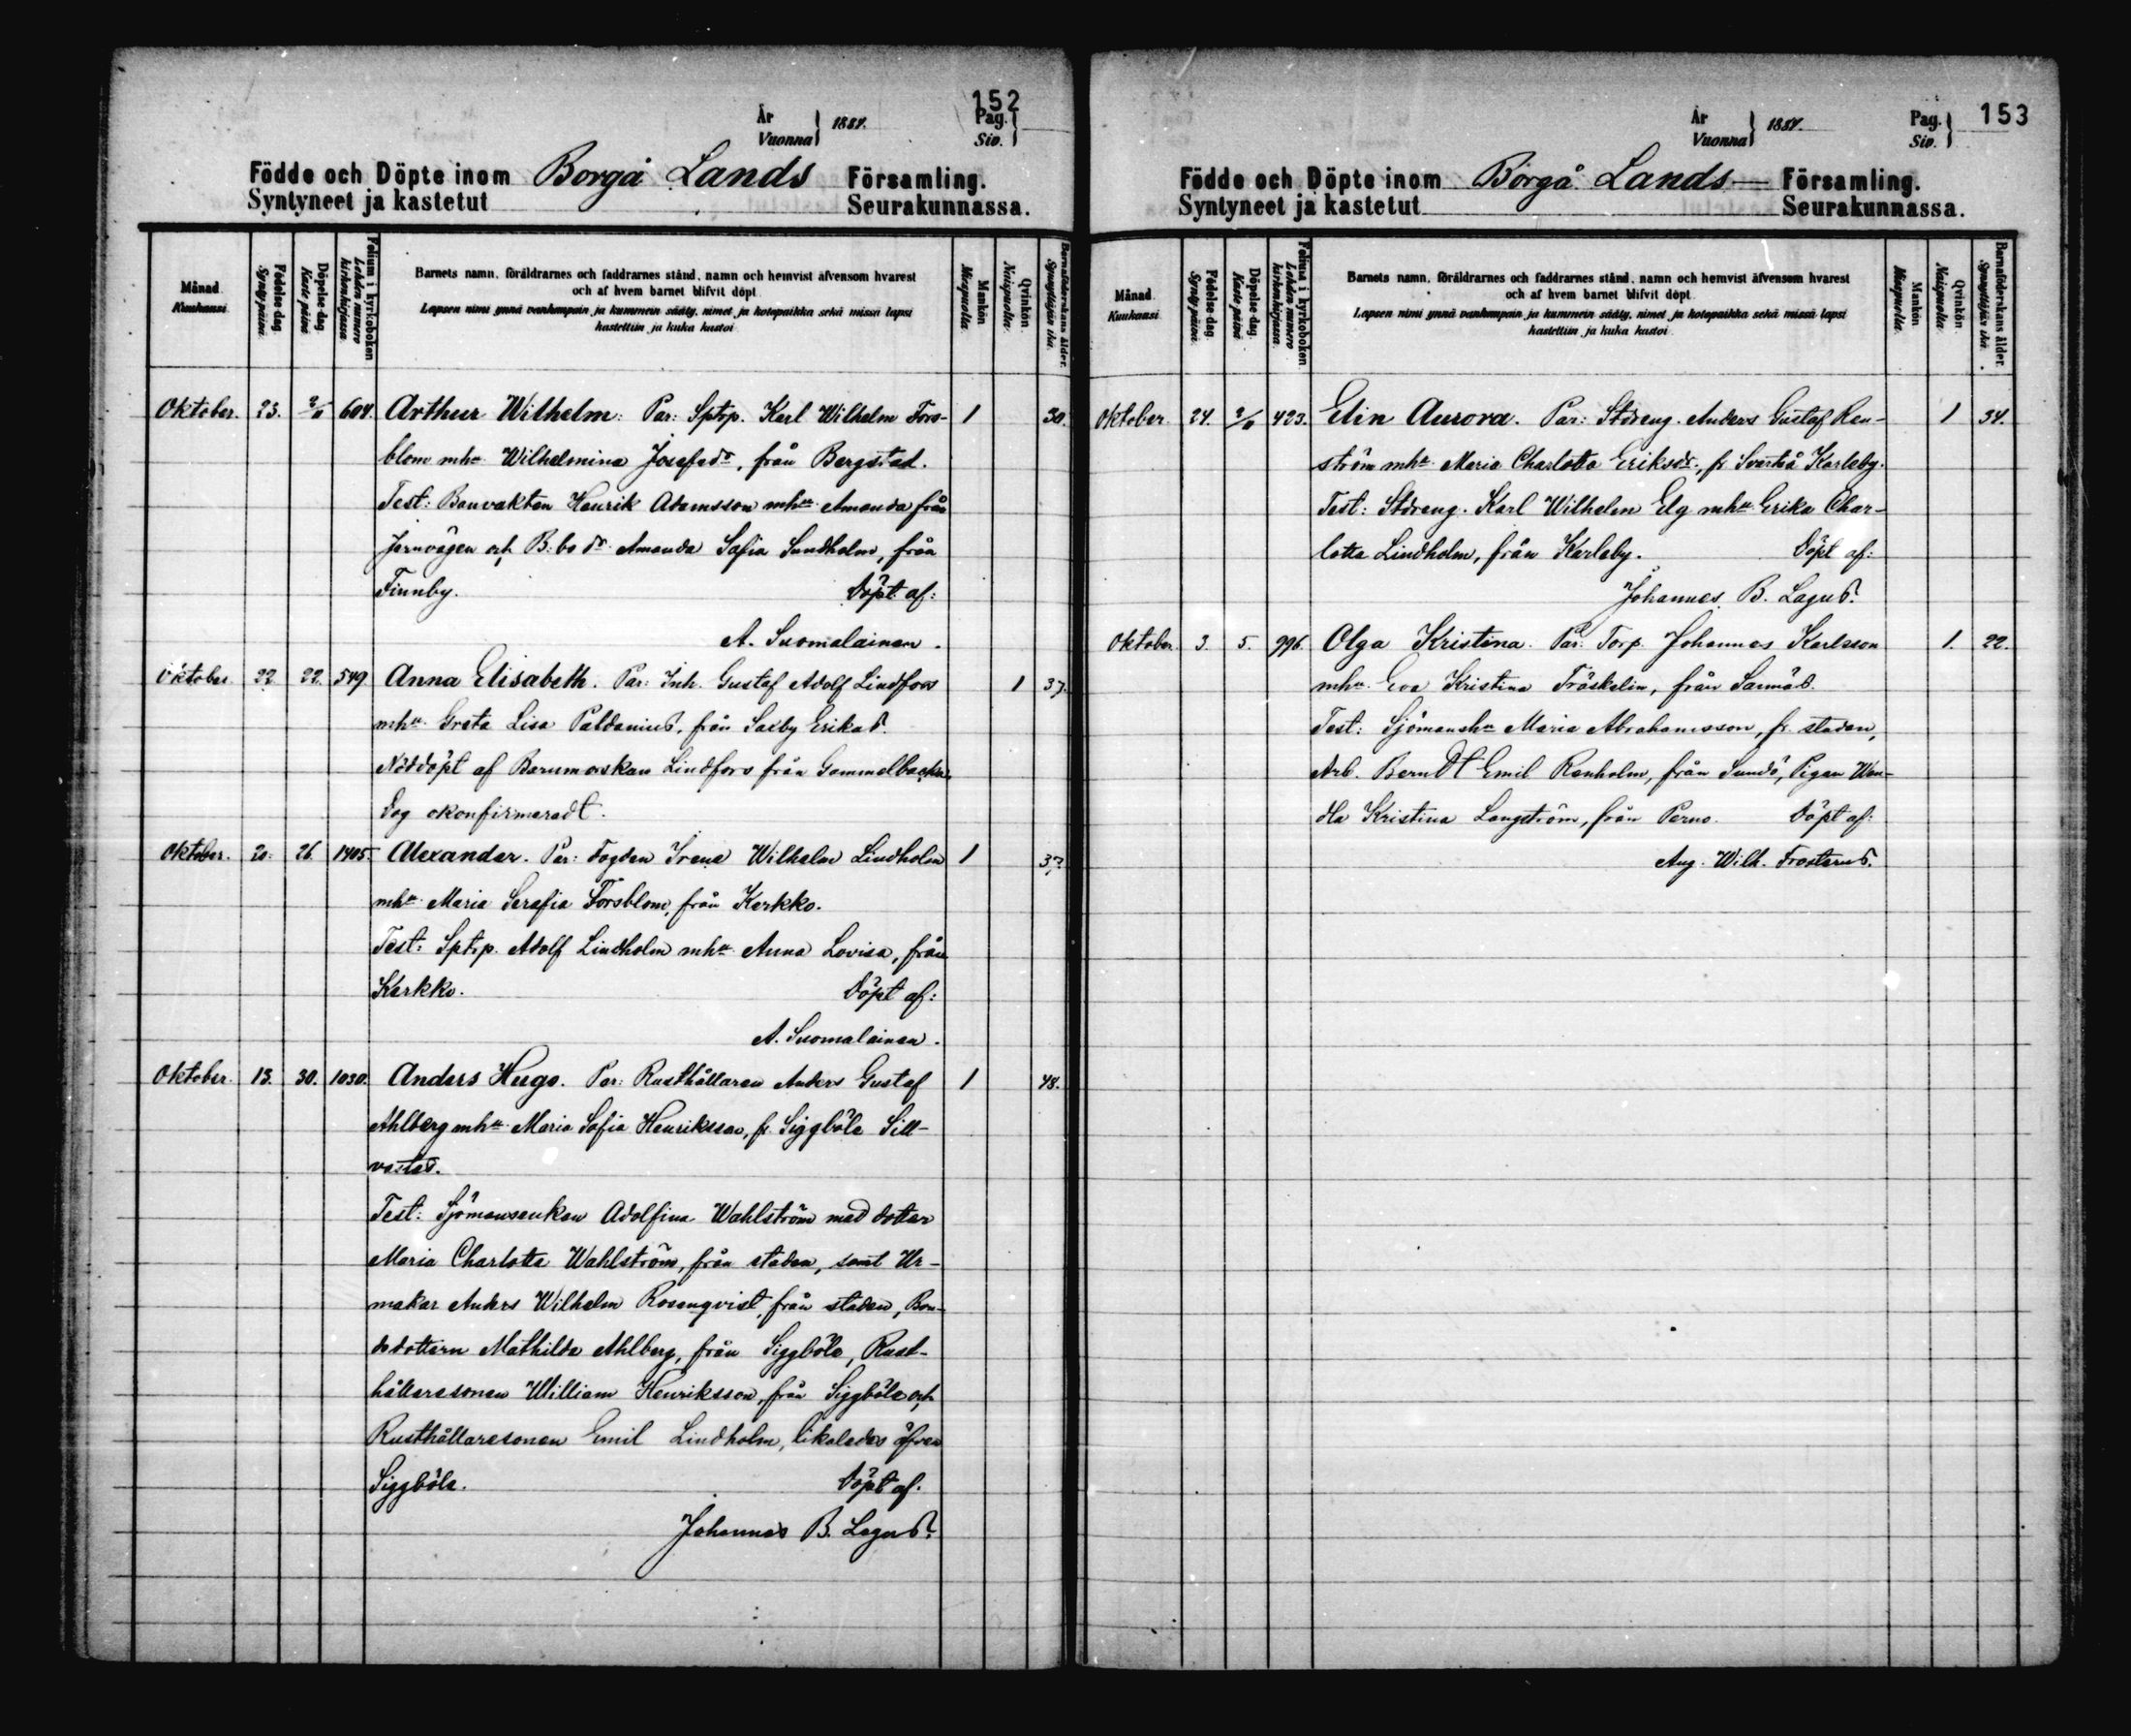 152
År
Vuonna
1884.
Pag.
Siv.
Födde och Döpte inom Borgå Lands Församling.
Syntyneet ja kastetut Seurakunnassa.
Månad
Kuukausi
Födelse-dag.
Synty-päivä.
Döpelse-dag.
Kaste-päivä.
Folium i kyrkoboken.
Lehden numero kirkonkirjassa.
Barnets namn, föräldrarnes och faddrarnes stånd, namn och hemvist äfvensom hvarest
och af hvem barnet blifvit döpt.
Lapsen nimi ynnä vanhempain ja kummein sääty, nimet ja kotopaikka sekä missä lapsi
kastettiin ja kuka kastoi.
Mankön
Miespuolia.
Qvinkön.
Naispuolia.
Barnaföderskans ålder.
Synnyttäjän ikä.
Oktober. 23. 2/11 604. Arthur Wilhelm. Par: Sptrp. Karl Wilhelm Fors- 1 30.
blom mhu Wilhelmina Josefsdr, från Bergstad.
Test: Banvakten Henrik Adamsson mhu Amanda från
Jernvägen och B:bo dr Amanda Sofia Sundholm, från
Finnby. Döpt af:
A. Suomalainen.
Oktober 22 22. 549 Anna Elisabeth. Par: Inh. Gustaf Adolf Lindfors 1 37.
mhu Greta Lisa Paldanius, från Saxby Erikas.
Nöddöpt af Barnmorskan Lindfors från Gammelbacka.
Dog okonfirmeradt.
Oktober. 20. 26. 1405. Alexander. Par: Fogden Irene Wilhelm Lindholm 1 37.
mhu Maria Serafia Forsblom, från Kerkko.
Test: Sptrp. Adolf Lindholm mhu Anna Lovisa, från
Kerkko. Döpt af:
A. Suomalainen.
Oktober. 13. 30. 1030. Anders Hugo. Par: Rusthållaren Anders Gustaf 1 48.
Ahlberg mhu Maria Sofia Henriksson, fr. Siggböle Sill-
vastas.
Test: Sjömansenkan Adolfina Wahlström med dotter
Maria Charlotta Wahlström, från staden, samt Ur-
makar Anders Wilhelm Rosenqvist, från staden, Bon-
dedottern Mathilda Ahlberg, från Siggböle, Rust-
hållaresonen William Henriksson, från Siggböle och
Rusthållaresonen Emil Lindholm, likaledes äfven
Siggböle. Döpt af.
Johannes B. Lagus.
153
År
Vuonna
1884.
Pag.
Siv.
Födde och Döpte inom Borgå Lands Församling.
Syntyneet ja kastetut Seurakunnassa.
Månad
Kuukausi
Födelse-dag.
Synty-päivä.
Döpelse-dag.
Kaste-päivä.
Folium i kyrkoboken.
Lehden numero kirkonkirjassa.
Barnets namn, föräldrarnes och faddrarnes stånd, namn och hemvist äfvensom hvarest
och af hvem barnet blifvit döpt.
Lapsen nimi ynnä vanhempain ja kummein sääty, nimet ja kotopaikka sekä missä lapsi
kastettiin ja kuka kastoi.
Mankön
Miespuolia.
Qvinkön.
Naispuolia.
Barnaföderskans ålder.
Synnyttäjän ikä.
Oktober. 24. 2/11 423. Elin Aurora. Par: Stdreng. Anders Gustaf Ren- 1 34.
ström mhu Maria Charlotta Eriksdr., fr. Svartså Karleby.
Test: Stdreng. Karl Wilhelm Elg mhu Erika Char-
lotta Lindholm, från Karleby. Döpt af:
Johannes B. Lagus.
Oktober. 3. 5. 996. Olga Kristina. Par: Torp. Johannes Karlsson 1. 22.
mhu Eva Kristina Fröskelin, från Sannäs.
Test: Sjömanshu Maria Abrahamsson, fr. staden,
Arb. Berndt Emil Renholm, från Sundö, Pigan Wen-
dla Kristina Langström, från Perno. Döpt af:
Aug. Wilh. Frosterus.